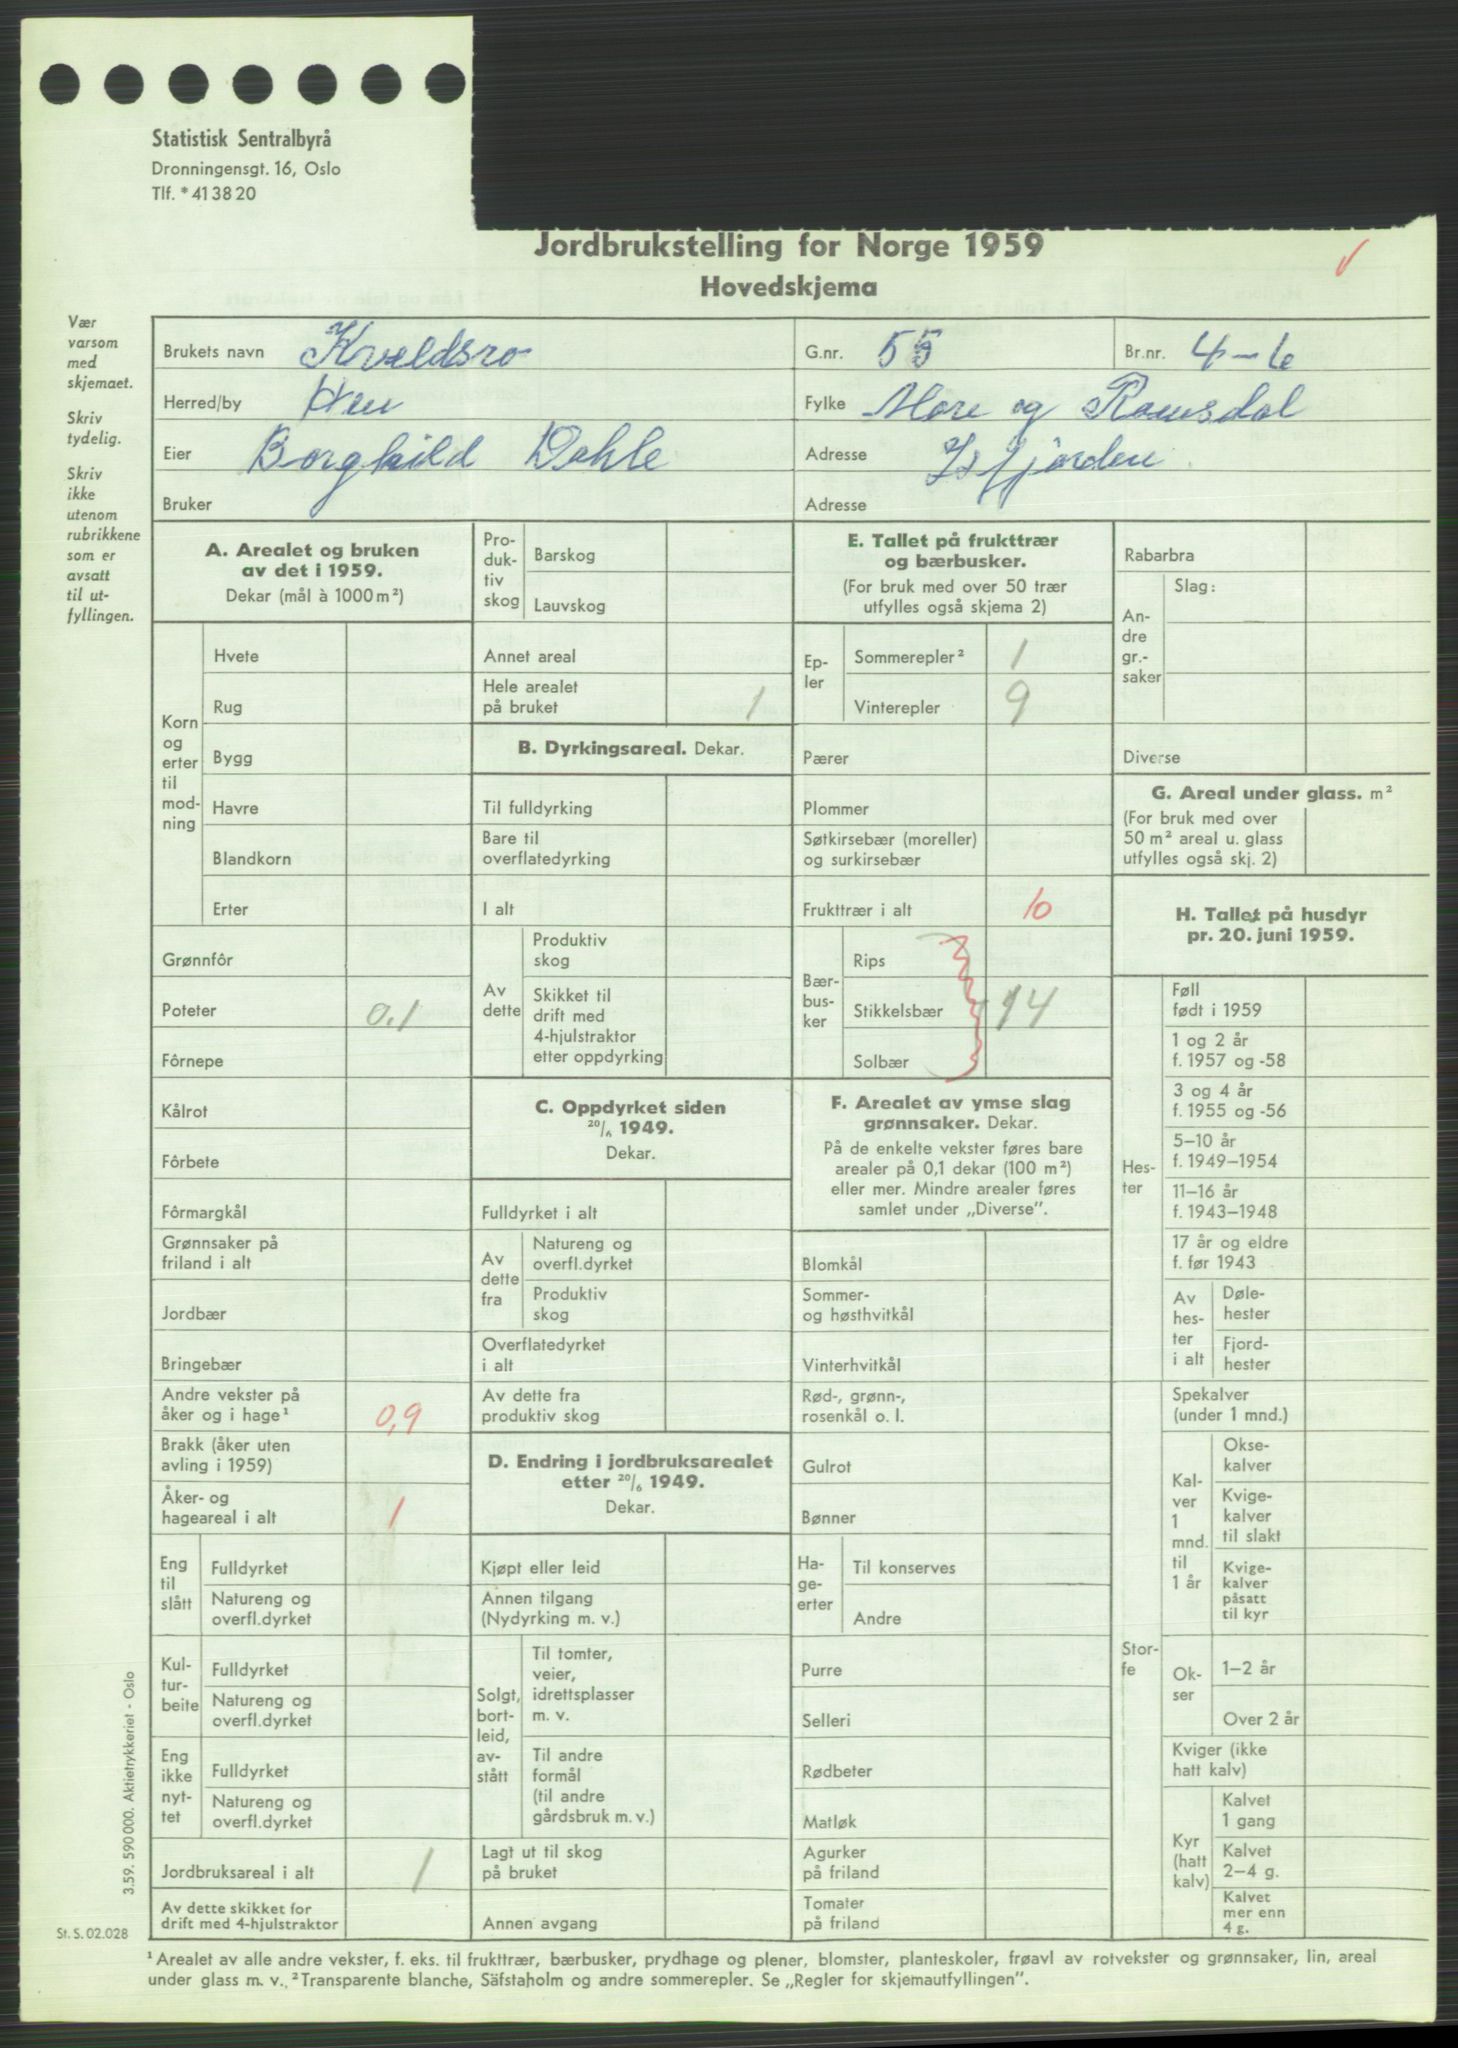 Statistisk Sentralbyrå
Dronningensgt. 16, Oslo
Tlf. *41 38 20
Jordbrukstelling for Norge 1959
Hovedskjema
Vær
varsom
med
skjemaet.
Skriv
tydelig.
Skriv
ikke
utenom
rubrikkene
som er
avsatt
til ut-
fyllingen.
Brukets navn Kveldsro
G.nr. 55 Br.nr. 4-6
Herred/by Hen
Fylke Møre og Romsdal
Eier Borghild Dahle
Adresse Isfjorden
Bruker
Adresse
A. Arealet og bruken
av det i 1959.
Dekar (mål à 1000 m²)
Korn
og
erter
til
mod-
ning
Hvete
Rug
Bygg
Havre
Blandkorn
Erter
Grønnfôr
Poteter 0,1
Fôrnepe
Kålrot
Fôrbete
Fôrmargkål
Grønnsaker på
friland i alt
Jordbær
Bringebær
Andre vekster på
åker og i hage¹ 0,9
Brakk (åker uten
avling i 1959)
Åker- og
hageareal i alt 1
Eng
til
slått
Fulldyrket
Natureng og
overfl.dyrket
Kul-
tur-
beite
Fulldyrket
Natureng og
overfl.dyrket
Eng
ikke
nyt-
tet
Fulldyrket
Natureng og
overfl.dyrket
Jordbruksareal i alt 1
Av dette skikket for
drift med 4-hjulstraktor
Pro-
duk-
tiv
skog
Barskog
Lauvskog
Annet areal
Hele arealet
på bruket 1
B. Dyrkingsareal. Dekar.
Til fulldyrking
Bare til
overflatedyrking
I alt
Av
dette
Produktiv
skog
Skikket til
drift med
4-hjulstraktor
etter oppdyrking
C. Oppdyrket siden
20/6 1949.
Dekar.
Fulldyrket i alt
Av
dette
fra
Natureng og
overfl.dyrket
Produktiv
skog
Overflatedyrket
i alt
Av dette fra
produktiv skog
D. Endring i jordbruksarealet
etter 20/6 1949.
Dekar.
Kjøpt eller leid
Annen tilgang
(Nydyrking m. v.)
Solgt,
bort-
leid,
av-
stått
Til tomter,
veier,
idrettsplasser
m. v.
Til andre
formål
(til andre
gårdsbruk m. v.)
Lagt ut til skog
på bruket
Annen avgang
E. Tallet på frukttrær
og bærbusker.
(For bruk med over 50 trær
utfylles også skjema 2)
Ep-
ler
Sommerepler² 1
Vinterepler 9
Pærer
Plommer
Søtkirsebær (moreller)
og surkirsebær
Frukttrær i alt 10
Bær-
bus-
ker
Rips
Stikkelsbær 14
Solbær
F. Arealet av ymse slag
grønnsaker. Dekar.
På de enkelte vekster føres bare
arealer på 0,1 dekar (100 m²)
eller mer. Mindre arealer føres
samlet under „Diverse".
Blomkål
Sommer-
og høsthvitkål
Vinterhvitkål
Rød-, grønn-,
rosenkål o. l.
Gulrot
Bønner
Ha-
ge-
erter
Til konserves
Andre
Purre
Selleri
Rødbeter
Matløk
Agurker
på friland
Tomater
på friland
Rabarbra
An-
dre
gr.-
saker
Slag:
Diverse
G. Areal under glass. m²
(For bruk med over
50 m² areal u. glass
utfylles også skj. 2)
H. Tallet på husdyr
pr. 20. juni 1959.
Hes-
ter
Føll
født i 1959
1 og 2 år
f. 1957 og -58
3 og 4 år
f. 1955 og -56
5–10 år
f. 1949–1954
11–16 år
f. 1943–1948
17 år og eldre
f. før 1943
Av
hes-
ter
i alt
Døle-
hester
Fjord-
hester
Stor-
fe
Spekalver
(under 1 mnd.)
Kal-
ver
1
mnd.
til
1 år
Okse-
kalver
Kvige-
kalver
til slakt
Kvige-
kalver
påsatt
til kyr
Ok-
ser
1–2 år
Over 2 år
Kviger (ikke
hatt kalv)
Kyr
(hatt
kalv)
Kalvet
1 gang
Kalvet
2–4 g.
Kalvet
mer enn
4 g.
3.59. 590 000. Aktietrykkeriet - Oslo
St. S. 02.028
¹ Arealet av alle andre vekster, f. eks. til frukttrær, bærbusker, prydhage og plener, blomster, planteskoler, frøavl av rotvekster og grønnsaker, lin, areal
under glass m. v. ² Transparente blanche, Säfstaholm og andre sommerepler. Se „Regler for skjemautfyllingen".